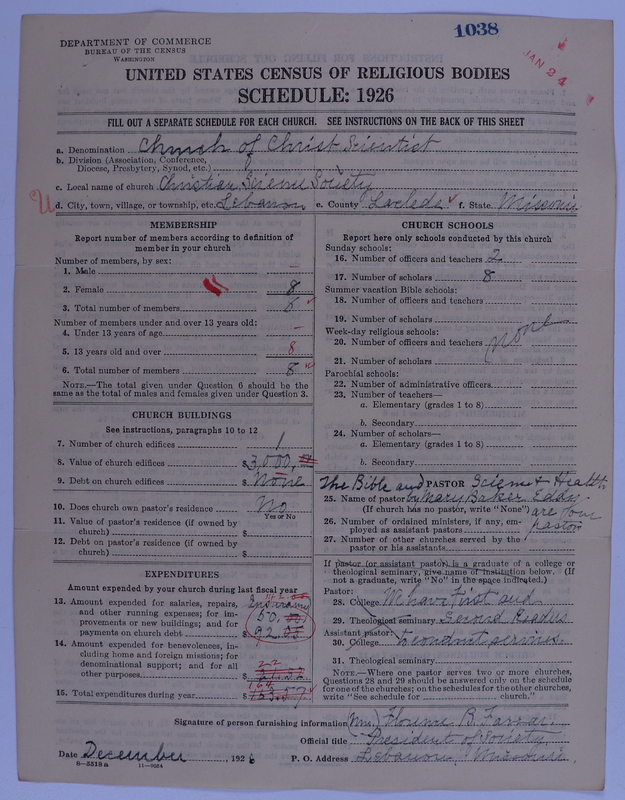 1038
JAN 24
DEPARTMENT OF COMMERCE
BUREAU OF THE CENSUS
WASHINGTON
UNITED STATES CENSUS OF RELIGIOUS BODIES
SCHEDULE: 1926
FILL OUT A SEPARATE SCHEDULE FOR EACH CHURCH. SEE INSTRUCTIONS ON THE BACK OF THIS SHEET
a. Denomination Church of Christ Scientist
b. Division (Association, Conference, Diocese, Presbytery, Synod, etc.)
c. Local name of church Christian Science Society
d. City, town, village, or township, etc. Lebanon e. County Laclede f. State Missouri
MEMBERSHIP
Report number of members according to definition of
member in your church
Number of members, by sex:
1. Male –
2. Female 8
3. Total number of members 8
Number of members under and over 13 years old:
4. Under 13 years of age –
5. 13 years old and over 8
6. Total number of members 8
NOTE.—The total given under Question 6 should be the
same as the total of males and females given under Question 3.
CHURCH BUILDINGS
See instructions, paragraphs 10 to 12
7. Number of church edifices 1
8. Value of church edifices $3,000.
9. Debt on church edifices $None
10. Does church own pastor's residence No
Yes or No
11. Value of pastor's residence (if owned by
church) $
12. Debt on pastor's residence (if owned by
church) $
EXPENDITURES
Amount expended by your church during last fiscal year
13. Amount expended for salaries, repairs,
and other running expenses; for im-
provements or new buildings; and for
payments on church debt $92.05
50.00
14. Amount expended for benevolences, in-
cluding home and foreign missions; for
denominational support; and for all
other purposes $
15. Total expenditures during year $
CHURCH SCHOOLS
Report here only schools conducted by this church
Sunday schools:
16. Number of officers and teachers 2
17. Number of scholars 8
Summer vacation Bible schools:
18. Number of officers and teachers
19. Number of scholars
Week-day religious schools:
20. Number of officers and teachers none
21. Number of scholars
Parochial schools:
22. Number of administrative officers
23. Number of teachers—
a. Elementary (grades 1 to 8)
b. Secondary
24. Number of scholars—
a. Elementary (grades 1 to 8)
b. Secondary
The Bible and PASTOR Science & Health
25. Name of pastor by Mary Baker Eddy
(If church has no pastor, write "None") are our
26. Number of ordained ministers, if any, em- pastor
ployed as assistant pastors
27. Number of other churches served by the
pastor or his assistants
If pastor (or assistant pastor) is a graduate of a college or
theological seminary, give name of institution below. (If
not a graduate, write "No" in the space indicated.)
Pastor:
28. College We have First and
29. Theological seminary Second Readers
Assistant pastor:
30. College to conduct services.
31. Theological seminary
NOTE.—Where one pastor serves two or more churches,
Questions 28 and 29 should be answered only on the schedule
for one of the churches; on the schedules for the other churches,
write "See schedule for church."
Signature of person furnishing information (Mrs.) Florence B. Farrar
Official title President of Society
Date December, 1926 P. O. Address Lebanon, Missouri.
8—5518 a 11—9054